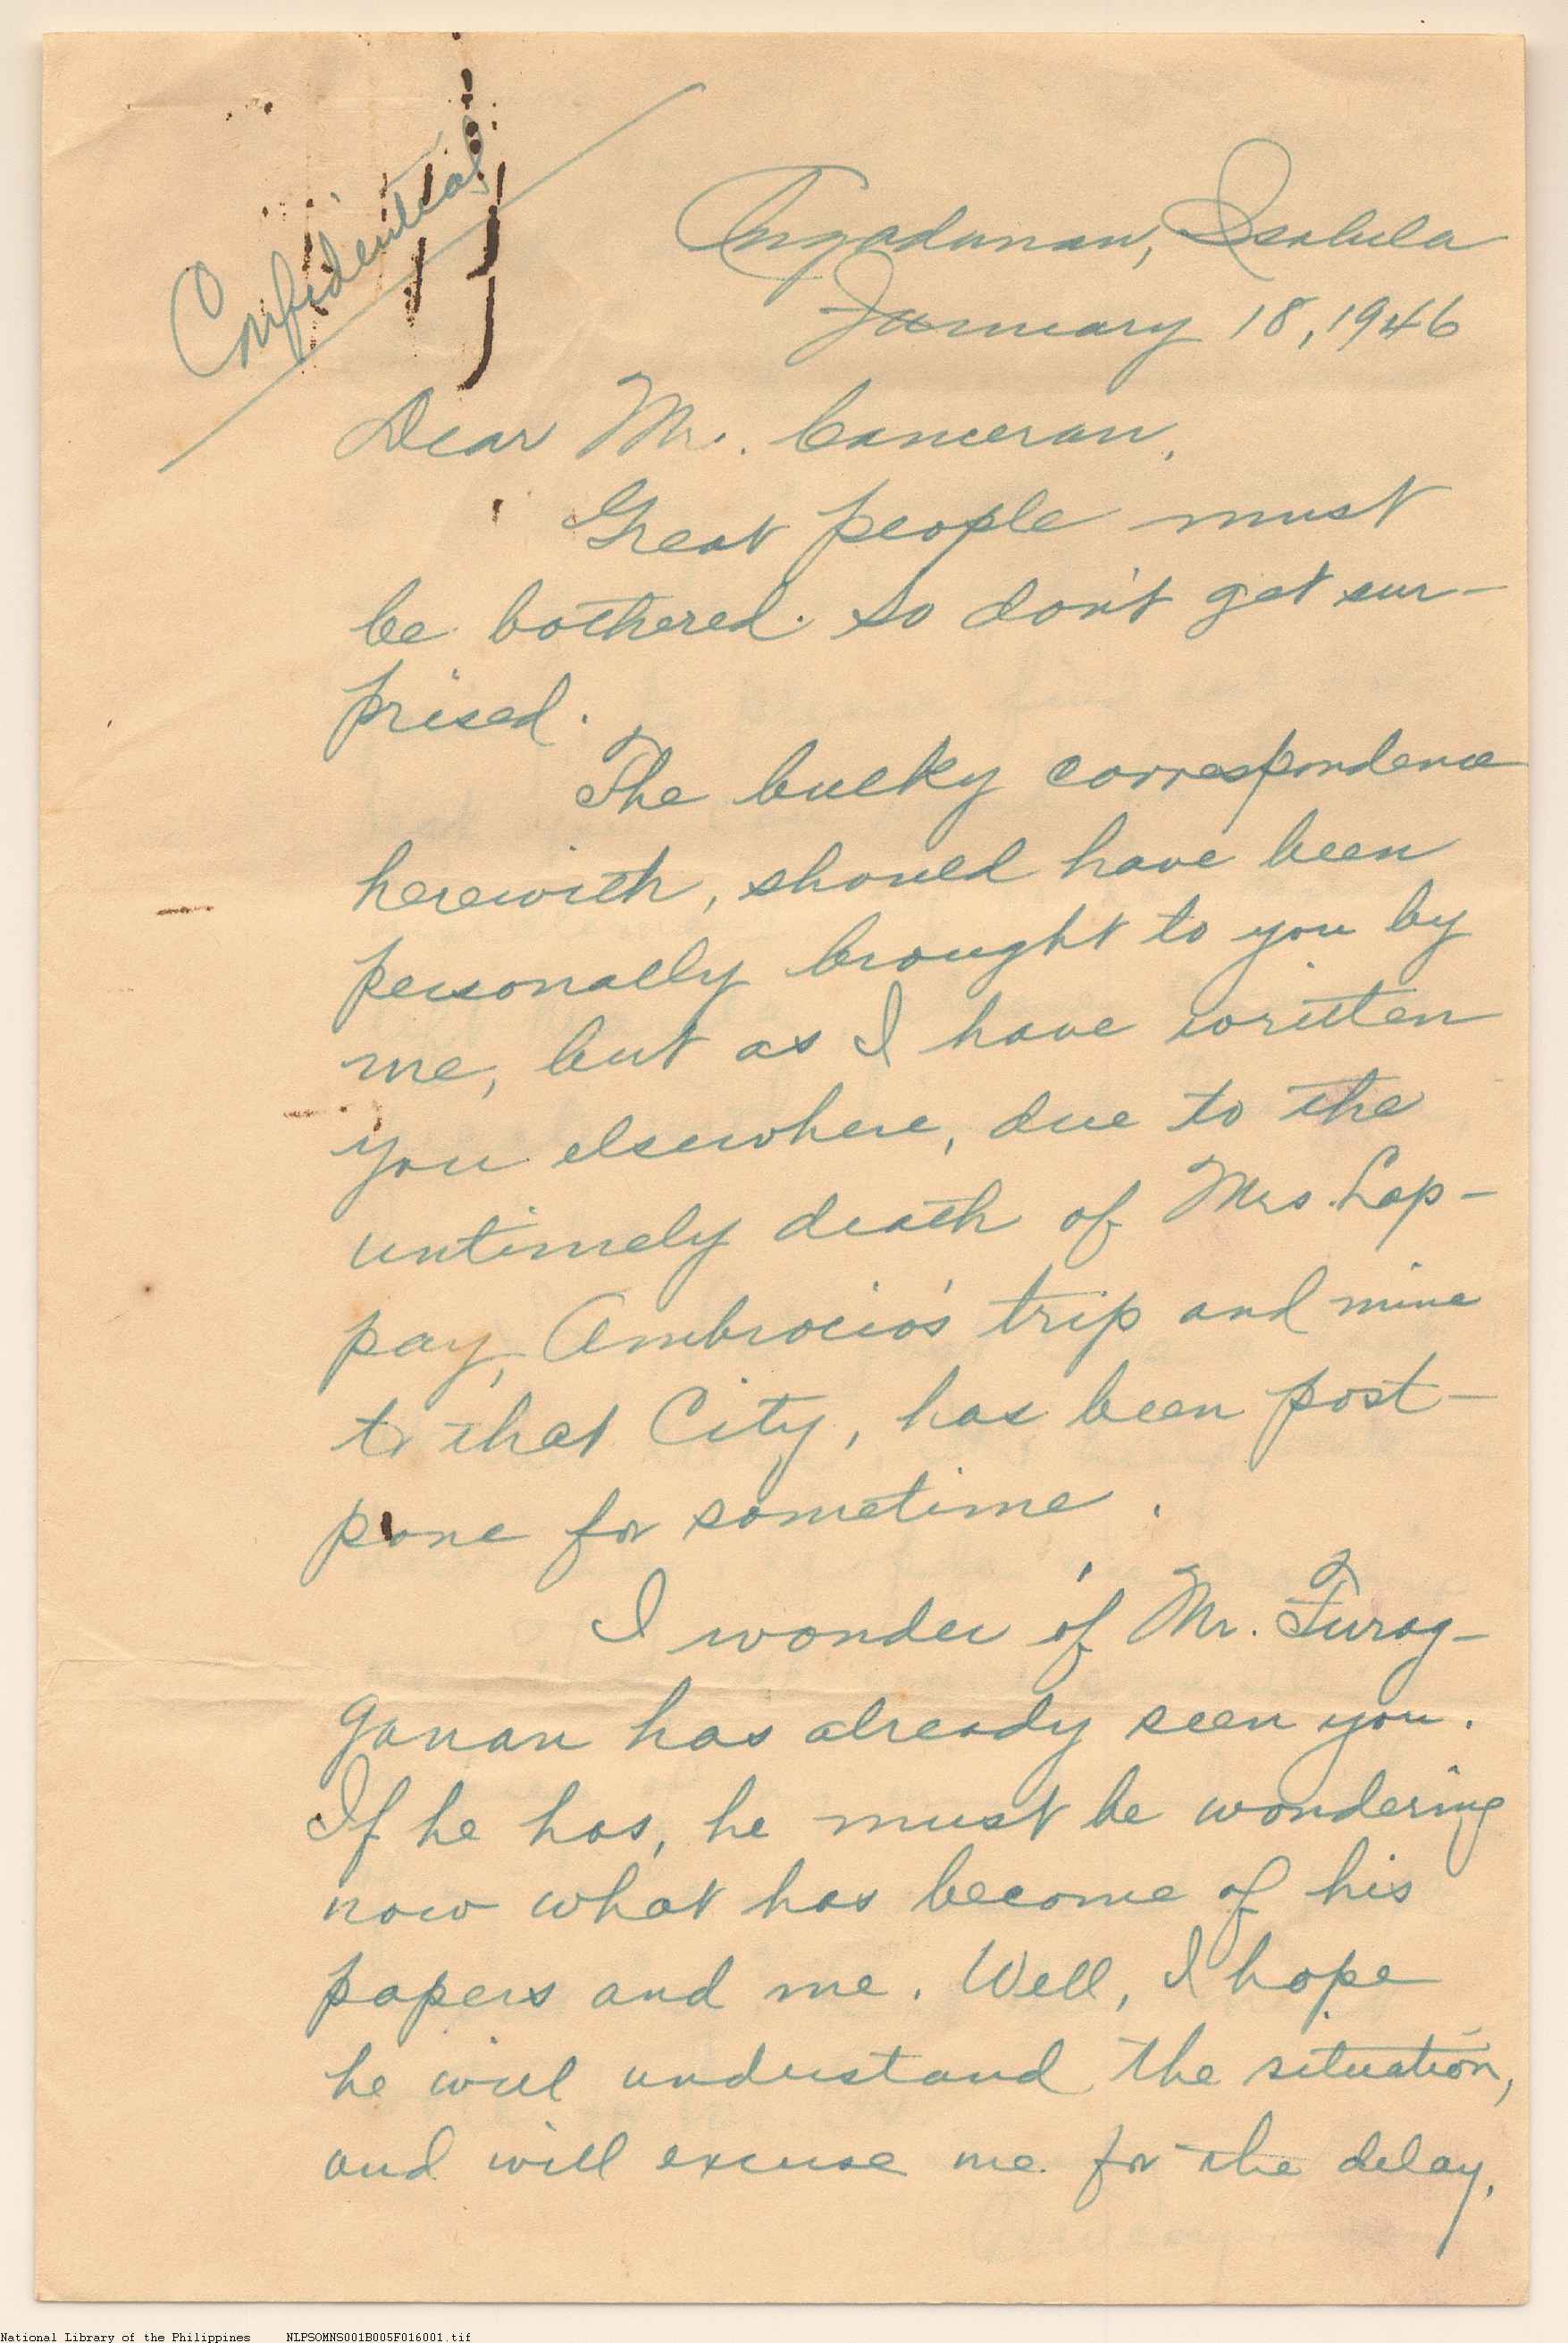 Confidential
Angadanan, Isabela
January 18, 1946
Dear Mr. Canceran,
Great people must
be bothered. So don't get sur-
prised.
The bulky correspondence
herewith, should have been
personally brought to you by
me, but as I have written
you elsewhere, due to the
untimely death of Mrs. Lap-
pay, Ambrocio's trip and mine
to that City, has been post-
pone for sometime.
I wonder if Mr. Turag-
ganan has already seen you.
If he has, he must be wondering
now what has become of his
papers and me. Well, I hope
he will understand the situation,
and will excuse me for the delay.
National Library of the Philippines NLPSOMNS001B005F016001.tif